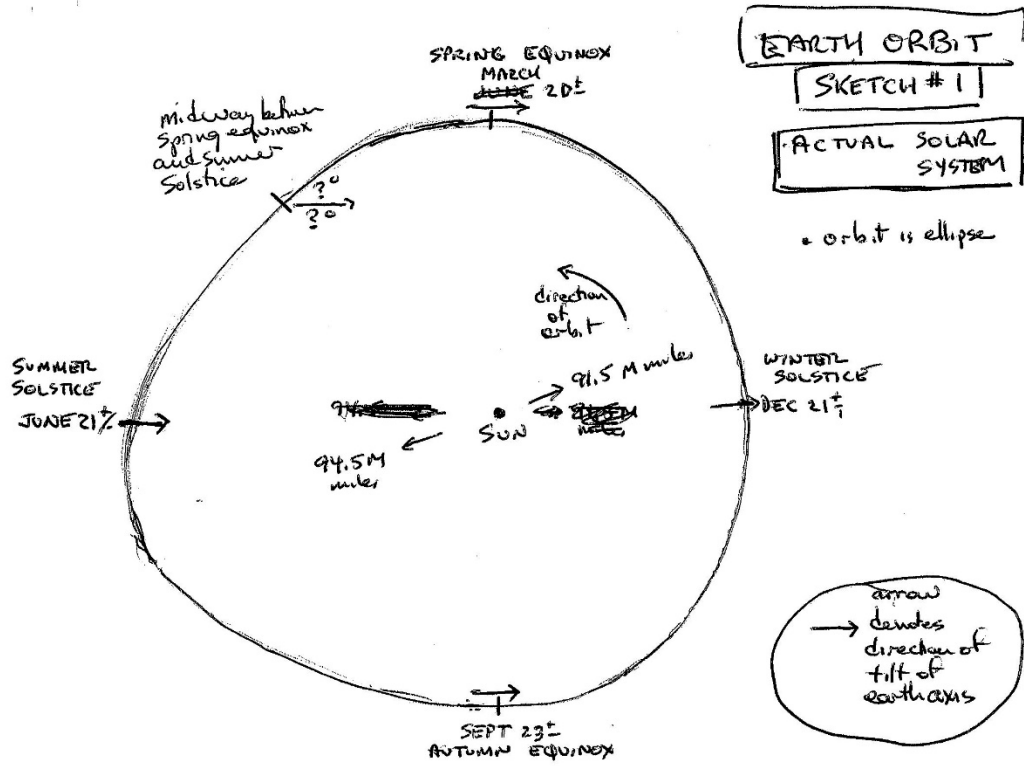 EARTH ORBIT
SKETCH #1
• ACTUAL SOLAR
SYSTEM
• orbit is ellipse
SPRING EQUINOX
MARCH
JUNE 20±
midway between
spring equinox
and summer
solstice
?°
?°
direction
of
orbit
SUMMER
SOLSTICE
JUNE 21±
WINTER
SOLSTICE
DEC 21±
91.5 M miles
94
miles
SUN
94.5M
miles
SEPT 23±
AUTUMN EQUINOX
arrow
denotes
direction of
tilt of
earth axis